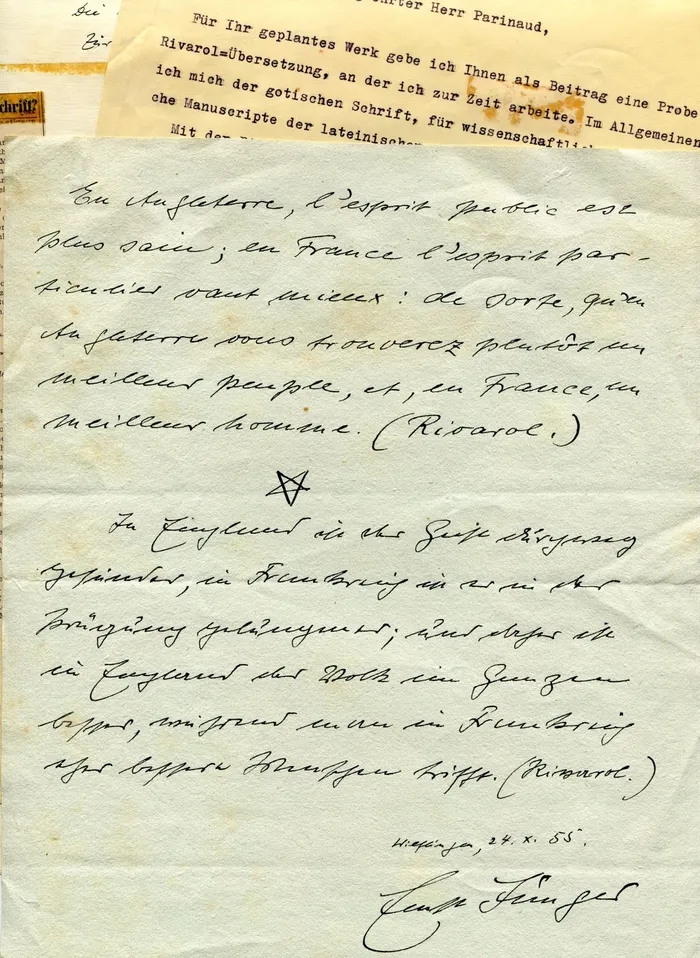 Die
ehrter Herr Parinaud,
Für Ihr geplantes Werk gebe ich Ihnen als Beitrag eine Probe
Rivarol=Übersetzung, an der ich zur Zeit arbeite. Im Allgemeinen
ich mich der gotischen Schrift, für wissenschaftlic
che Manuscripte der lateinischen
Mit
chrift?
En Angleterre, l'esprit public est
plus sain; en France l'esprit par-
ticulier vaut mieux: de sorte, qu'en
Angleterre vous trouverez plutôt un
meilleur peuple, et, en France, un
meilleur homme. (Rivarol.)
In England ist der Geist durchweg
gesünder, in Frankreich ist er in der
Prägung gelungener; und daher ist
in England das Volk im Ganzen
besser, während man in Frankreich
eher bessere Menschen trifft. (Rivarol.)
Wilflingen, 24. X. 55.
Ernst Jünger